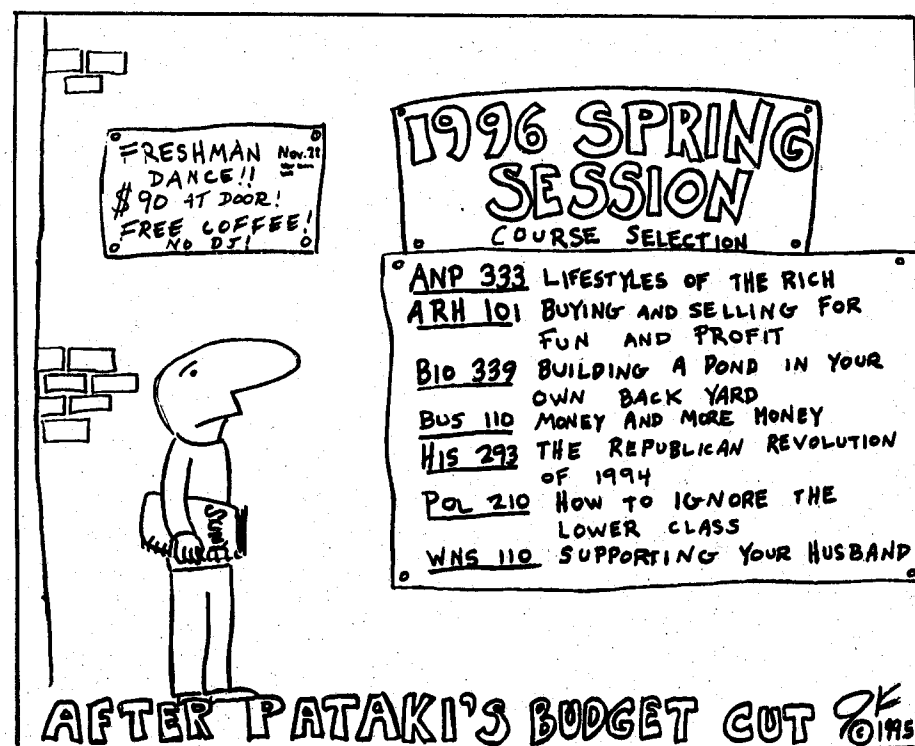 FRESHMAN Nov. 21
DANCE!!
$90 AT DOOR!
FREE COFFEE!
NO DJ!
1996 SPRING
SESSION
COURSE SELECTION
ANP 333 LIFESTYLES OF THE RICH
ARH 101 BUYING AND SELLING FOR
FUN AND PROFIT
BIO 339 BUILDING A POND IN YOUR
OWN BACK YARD
BUS 110 MONEY AND MORE MONEY
HIS 293 THE REPUBLICAN REVOLUTION
OF 1994
POL 210 HOW TO IGNORE THE
LOWER CLASS
WNS 110 SUPPORTING YOUR HUSBAND
AFTER PATAKI'S BUDGET CUT
©1995